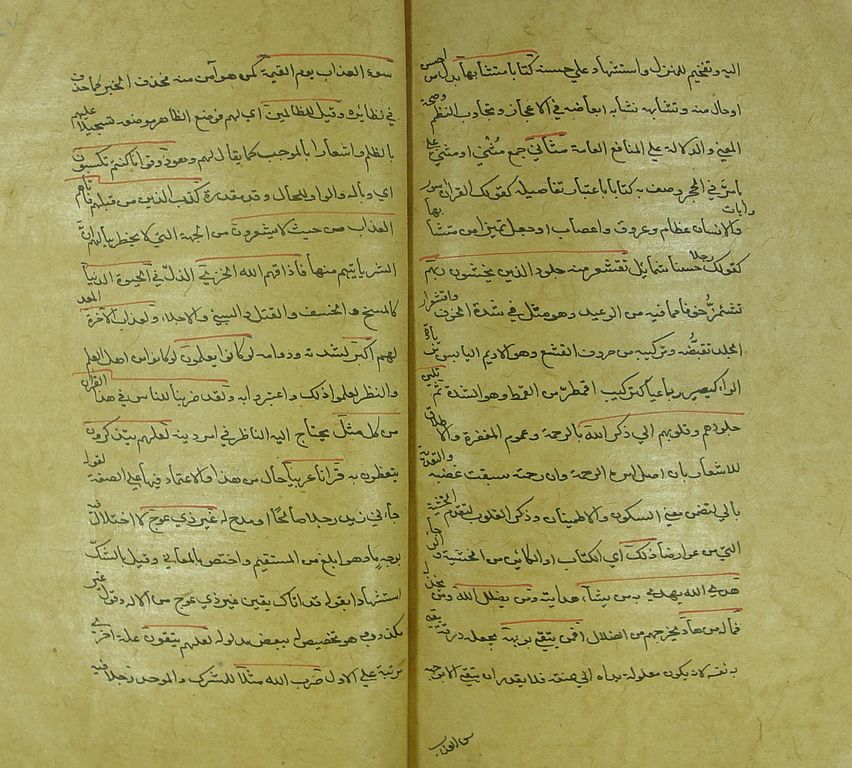 اليه وتفخيم للمنزل واستشهاد علي حسنه كتابا متشابها بدل من احسن
او حال منه وتشابهه تشابه ابعاضه في الاعجاز وتجاوب النظم وصحة
المعني والدلالة علي المنافع العامة مثاني جمع مثني او مثني علي
ما مر في الحجر وصف به كتابا باعتبار تفاصيله كقولك القران سور وايات
والانسان عظام وعروق واعصاب او جعل تميزا من متشابها
كقولك رجلا حسنا شمائل تقشعر منه جلود الذين يخشون ربهم
تشمئز خوفا مما فيه من الوعيد وهو مثل في شدة الخوف واقشعرار
الجلد تقبضه وتركيبه من حروف القشع وهو الاديم اليابس بزيادة
الراء ليصير رباعيا كتركيب اقمطر من القمط وهو الشد ثم تلين
جلودهم وقلوبهم الي ذكر الله بالرحمة وعموم المغفرة والاطلاق
للاشعار بان اصل امره الرحمة وان رحمته سبقت غضبه والتعدية
بالي لتضمن معني السكون والاطمينان وذكر القلوب لتقدم الخشية
التي من عوارضها ذلك اي الكتاب او الكائن من الخشية والرجا
هدي الله يهدي به من يشاء هدايته ومن يضلل الله ومن يخذله
فما له من هاد يخرجهم من الضلال افمن يتقي بوجهه يجعله درقة يقي
به نفسه لانه يكون مغلولة يداه الي عنقه فلا يقدر ان يتقي الا بوجهه
سوء العذاب
سوء العذاب يوم القيمة كمن هو آمن منه فحذف الخبر كما حذف
في نظايره وقيل للظالمين اي لهم فوضع الظاهر موضعه تسجيلا عليهم
بالظلم واشعارا بالموجب لما يقال لهم وهو ذوقوا ما كنتم تكسبون
اي وباله والواو للحال وقد مقدرة كذب الذين من قبلهم فاتاهم
العذاب من حيث لا يشعرون من الجهة التي لا يخطر ببالهم ان
الشر ياتيهم منها فاذاقهم الله الخزي الذل في الحيوة الدنيا
كالمسخ والخسف والقتل والسبي والاجلاء ولعذاب الآخرة المعد
لهم اكبر لشدته ودوامه لو كانوا يعلمون لو كانوا من اهل العلم
والنظر لعلموا ذلك واعتبروا به ولقد ضربنا للناس في هذا القران
من كل مثل يحتاج اليه الناظر في امر دينه لعلهم يتذكرون
يتعظون به قرانا عربيا حال من هذا والاعتماد فيها علي الصفة لقوله
جاءني زيد رجلا صالحا او مدح له غير ذي عوج لا اختلال فيه
بوجه ما وهو ابلغ من المستقيم واختص بالمعاني وقيل بالشك
استشهادا بقوله وقد اتاك يقين غير ذي عوج من الاله وقول غير
مكذوب وهو تخصيص له ببعض مدلوله لعلهم يتقون علة اخري
مرتبة علي الاول ضرب الله مثلا للمشرك والموحد رجلا فيه